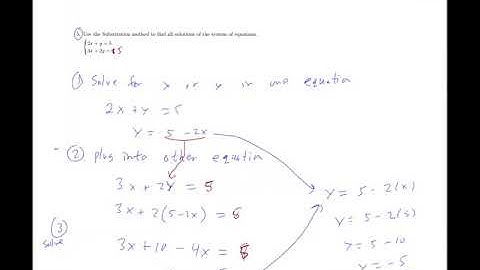 5. Use the Substitution method to find all solutions of the system of equations.
2x + y = 5
① Solve for x or y in one equation
2x + y = 5
y = 5 - 2x
② plug into other equation
3x + 2y = 5
3x + 2(5-2x) = 8
③
Solve
3x + 10 - 4x = 8
y = 5 - 2(x)
y = 5 - 2(5)
y = 5 - 10
y = -5